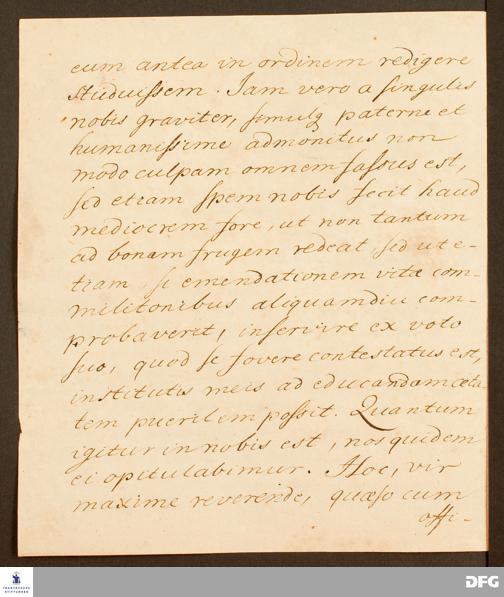 eum antea in ordinem redigere
studuissem. Jam vero a singulis
nobis graviter, simulq paterne et
humanissime admonitus non
modo culpam omnem fassus est,
sed etiam spem nobis fecit haud
mediocrem fore, ut non tantum
ad bonam frugem redeat, sed ut e-
tiam, si emendationem vitæ com-
militonibus aliquamdiu com-
probaverit, inservire ex voto
suo, quod se fovere contestatus est,
institutis meis ad educandam æta
tem puerilem possit. Quantum
igitur in nobis est, nos quidem
ei opitulabimur. Hoc, vir
maxime reverende, quæso cum
offi-
FRANCKESCHE
STIFTUNGEN
DFG